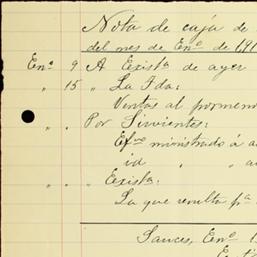 Nota de caja de
del mes de Enº de 191
Enº 9 A Existª de ayer
" 15 " La Fda:
Ventas al pormeno
" " Por Sirvientes:
Efvo ministrado á a
id " a
" " " Existª:
La que resulta pª
Sauces, Enº 1